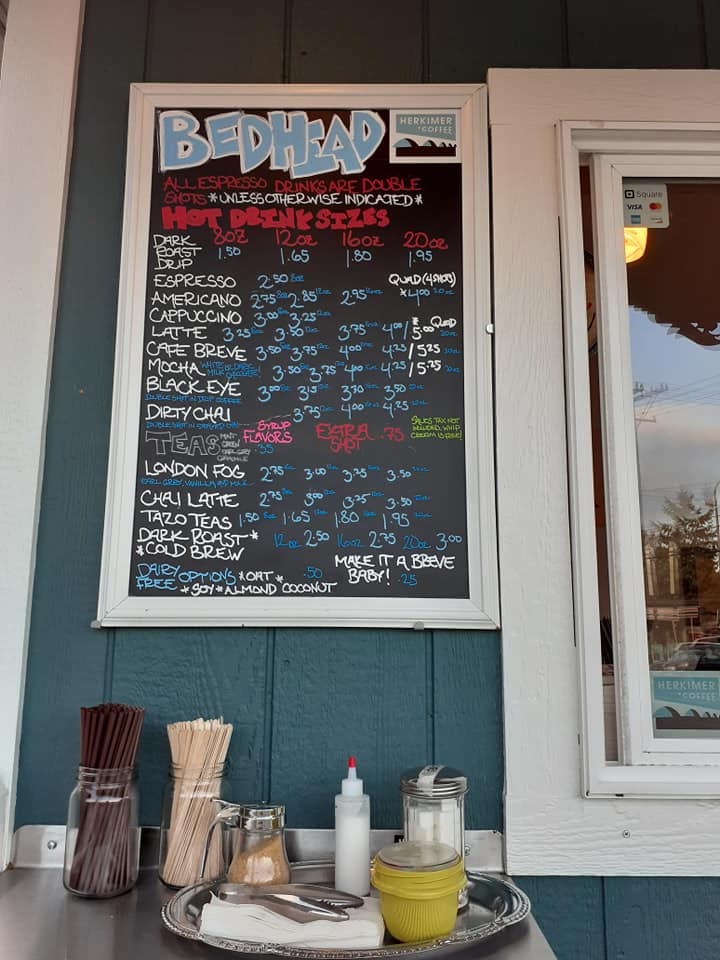 BEDHEAD
HERKIMER
COFFEE
ALL ESPRESSO DRINKS ARE DOUBLE
SHOTS *UNLESS OTHERWISE INDICATED*
HOT DRINK SIZES
8oz 12oz 16oz 20oz
DARK ROAST DRIP 1.50 1.65 1.80 1.95
ESPRESSO 2.50 QUAD (4 SHOTS)
AMERICANO 2.75 2.85 2.95 *4.00
CAPPUCCINO 3.00 3.25
LATTE 3.25 3.50 3.75 4.00/5.00 *QUAD
CAFE BREVE 3.50 3.75 4.00 4.25/5.25
MOCHA WHITE OR DARK MILK CHOCOLATE 3.50 3.75 4.00 4.25/5.25
BLACK EYE 3.00 3.15 3.30 3.50
DOUBLE SHOT IN DRIP COFFEE
DIRTY CHAI 3.75 4.00 4.25
DOUBLE SHOT IN
TEAS MINT GREEN EARL GREY CHAMOMILE
SYRUP FLAVORS .35
EXTRA SHOT .75
SALES TAX NOT INCLUDED, WHIP CREAM IS FREE!
LONDON FOG 2.75 3.00 3.25 3.50
EARL GREY, VANILLA, AND MILK
CHAI LATTE 2.75 3.00 3.25 3.50
TAZO TEAS 1.50 1.65 1.80 1.95
DARK ROAST* 12oz 2.50 16oz 2.75 20oz 3.00
*COLD BREW
MAKE IT A BREVE BABY! .25
DAIRY FREE OPTIONS *OAT* .50
*SOY*ALMOND COCONUT
Square
VISA
HERKIMER
COFFEE